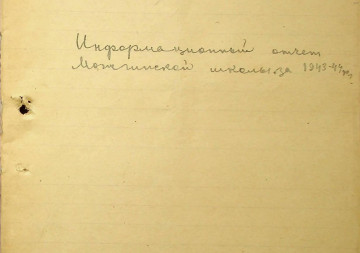 Информационный отчет
Можгинской школы за 1943-44 г.